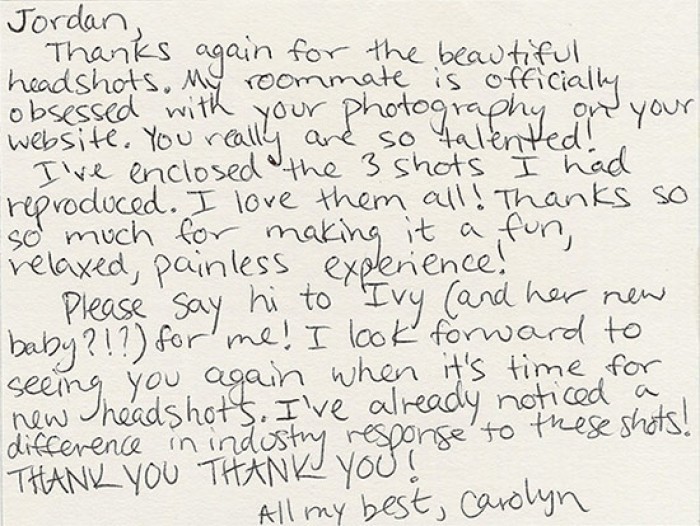 Jordan,
Thanks again for the beautiful
headshots. My roommate is officially
obsessed with your photography on your
website. You really are so talented!
I've enclosed the 3 shots I had
reproduced. I love them all! Thanks so
so much for making it a fun,
relaxed, painless experience!
Please say hi to Ivy (and her new
baby?!?) for me! I look forward to
seeing you again when it's time for
new headshots. I've already noticed a
difference in industry response to these shots!
THANK YOU THANK YOU!
All my best, Carolyn